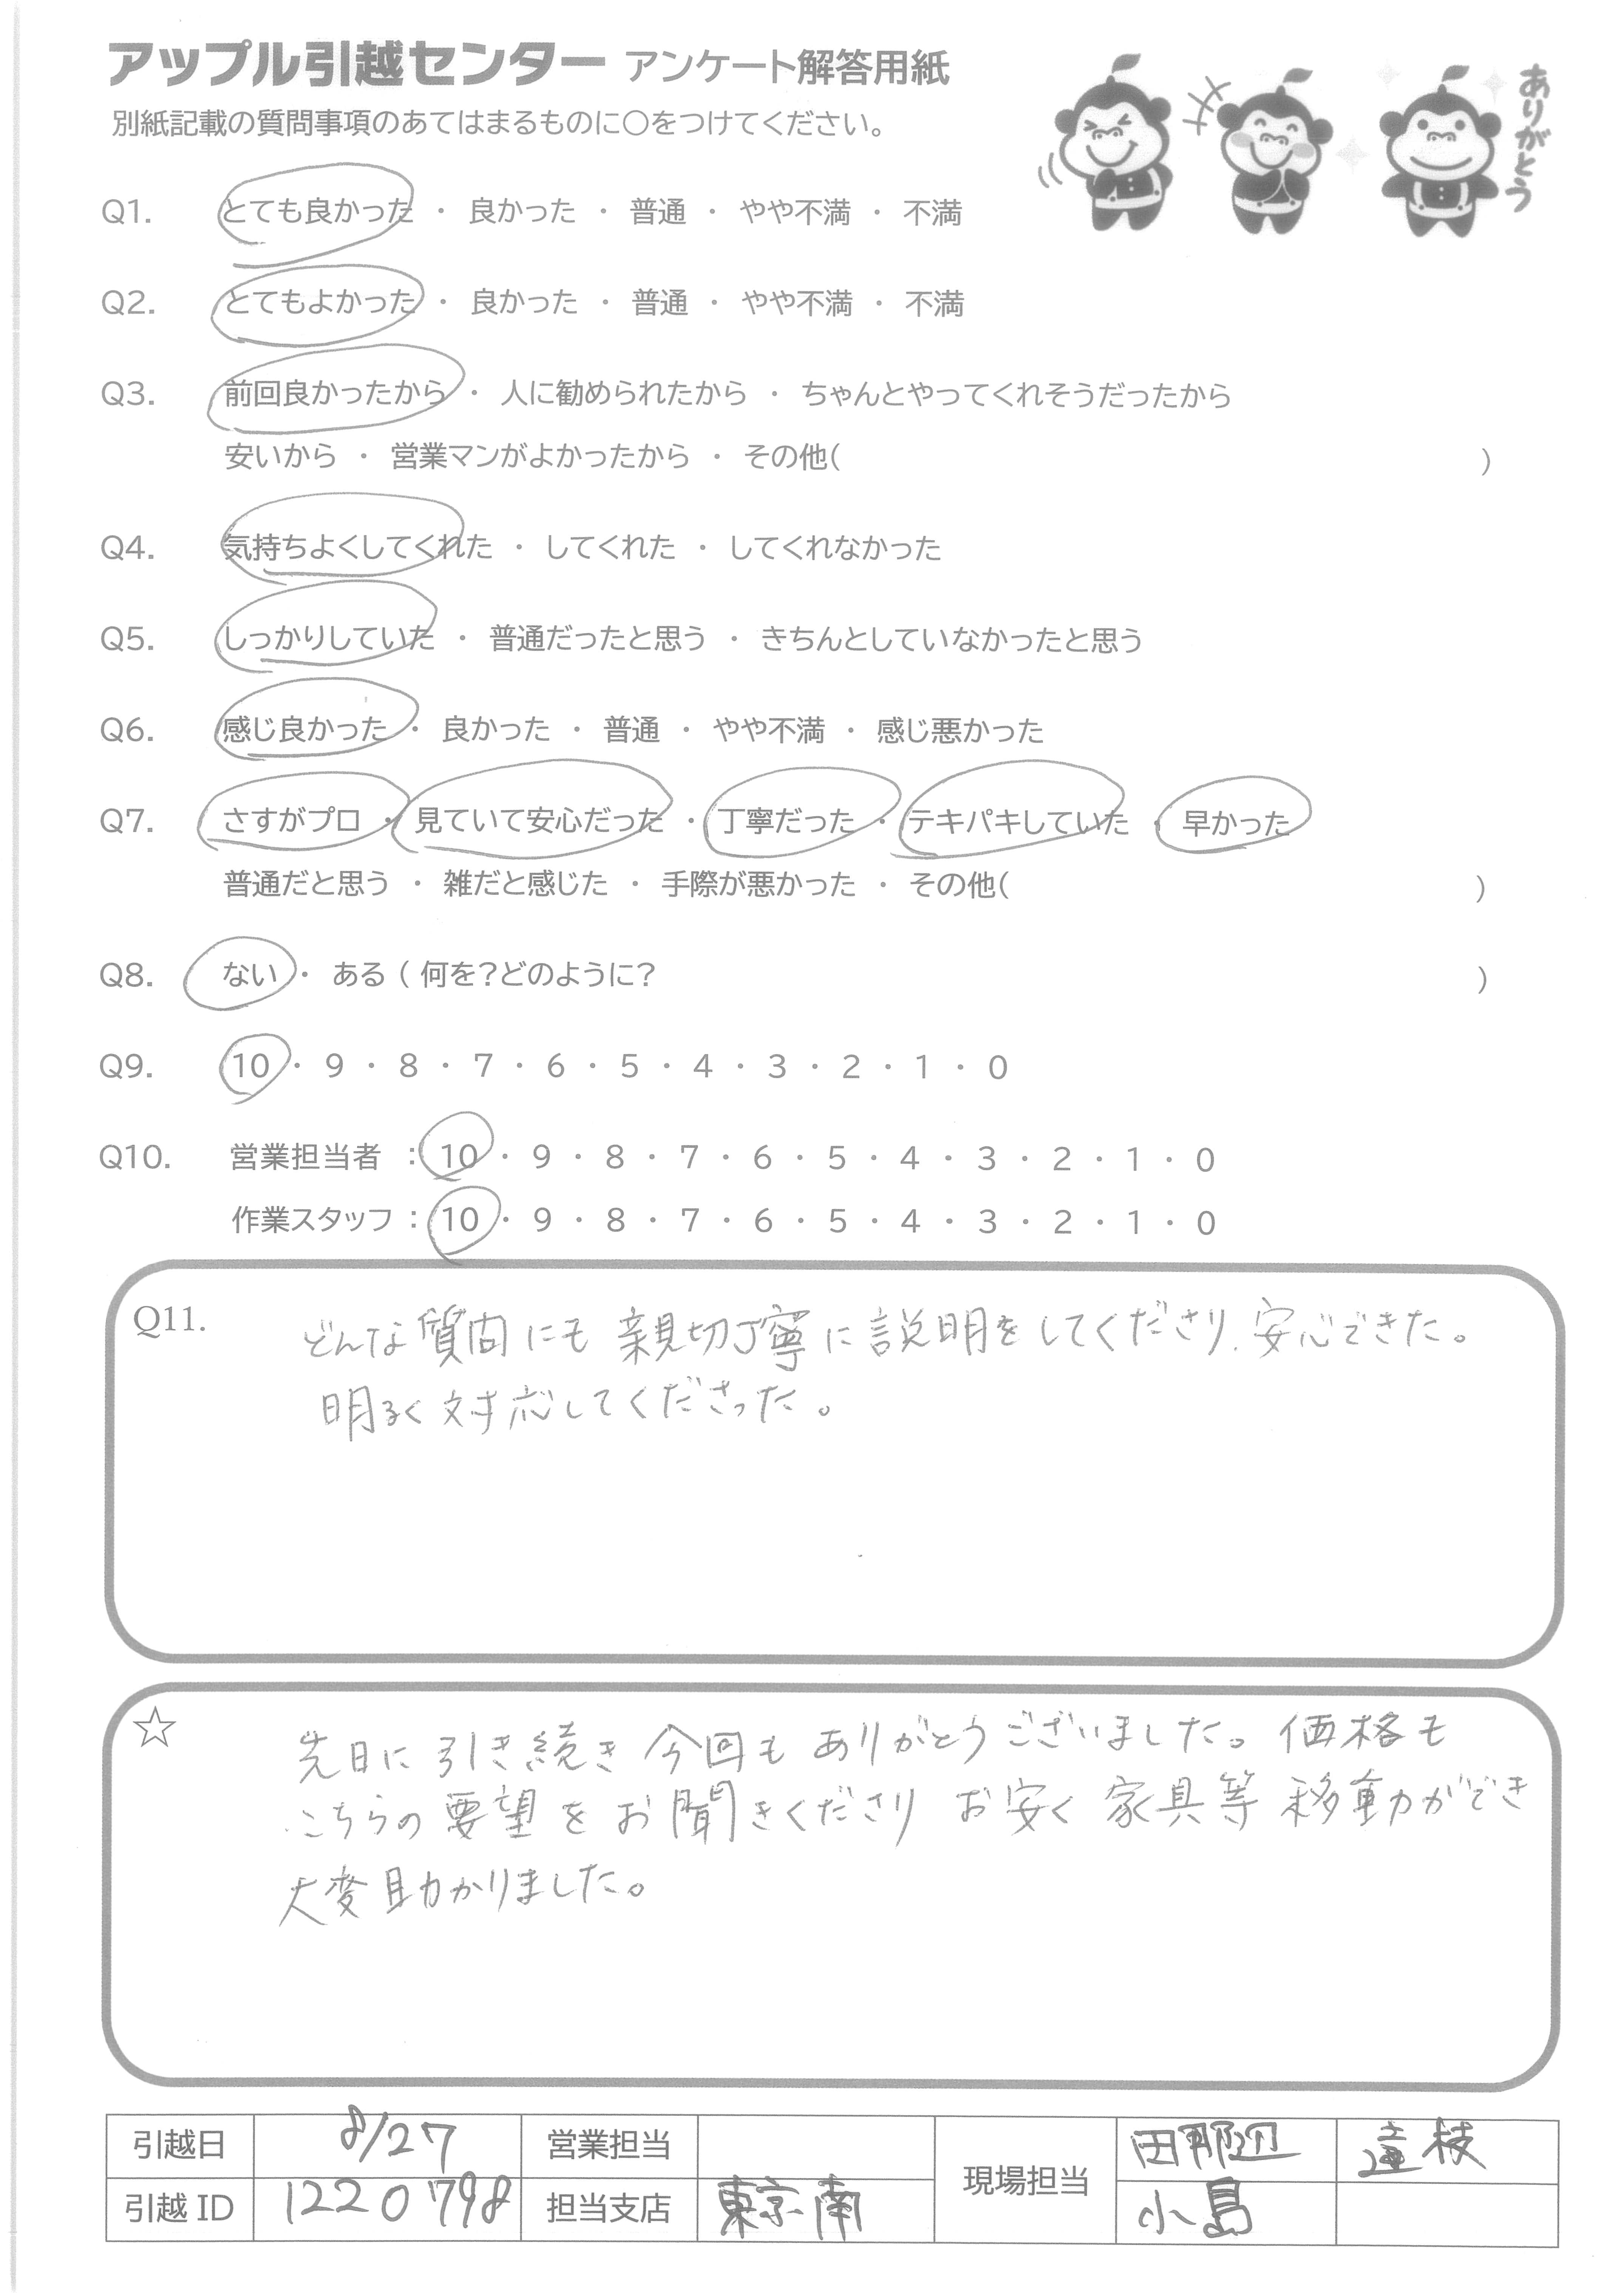 アップル引越センター アンケート解答用紙
ありがとう
別紙記載の質問事項のあてはまるものに○をつけてください。
Q1. とても良かった ・ 良かった ・ 普通 ・ やや不満 ・ 不満
Q2. とてもよかった ・ 良かった ・ 普通 ・ やや不満 ・ 不満
Q3. 前回良かったから ・ 人に勧められたから ・ ちゃんとやってくれそうだったから
安いから ・ 営業マンがよかったから ・ その他( )
Q4. 気持ちよくしてくれた ・ してくれた ・ してくれなかった
Q5. しっかりしていた ・ 普通だったと思う ・ きちんとしていなかったと思う
Q6. 感じ良かった ・ 良かった ・ 普通 ・ やや不満 ・ 感じ悪かった
Q7. さすがプロ ・ 見ていて安心だった ・ 丁寧だった ・ テキパキしていた ・ 早かった
普通だと思う ・ 雑だと感じた ・ 手際が悪かった ・ その他( )
Q8. ない ・ ある ( 何を?どのように? )
Q9. 10 ・ 9 ・ 8 ・ 7 ・ 6 ・ 5 ・ 4 ・ 3 ・ 2 ・ 1 ・ 0
Q10. 営業担当者 : 10 ・ 9 ・ 8 ・ 7 ・ 6 ・ 5 ・ 4 ・ 3 ・ 2 ・ 1 ・ 0
作業スタッフ : 10 ・ 9 ・ 8 ・ 7 ・ 6 ・ 5 ・ 4 ・ 3 ・ 2 ・ 1 ・ 0
Q11. どんな質問にも親切丁寧に説明をしてくださり、安心できた。
明るく対応してくださった。
☆ 先日に引き続き今回もありがとうございました。価格も
こちらの要望をお聞きくださりお安く家具等移動ができ
大変助かりました。
引越日 8/27 営業担当 現場担当 田那辺
引越 ID 1220798 担当支店 東京南 小島